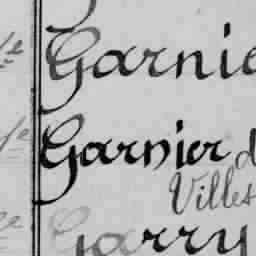 Garnie
Garnier d
Villes
Garry